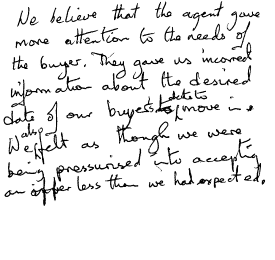 We believe that the agent gave
more attention to the needs of
the buyer. They gave us incorrect
information about the desired
date of our buyers to move in.
We also felt as though we were
being pressurised into accepting
an offer less than we had expected.